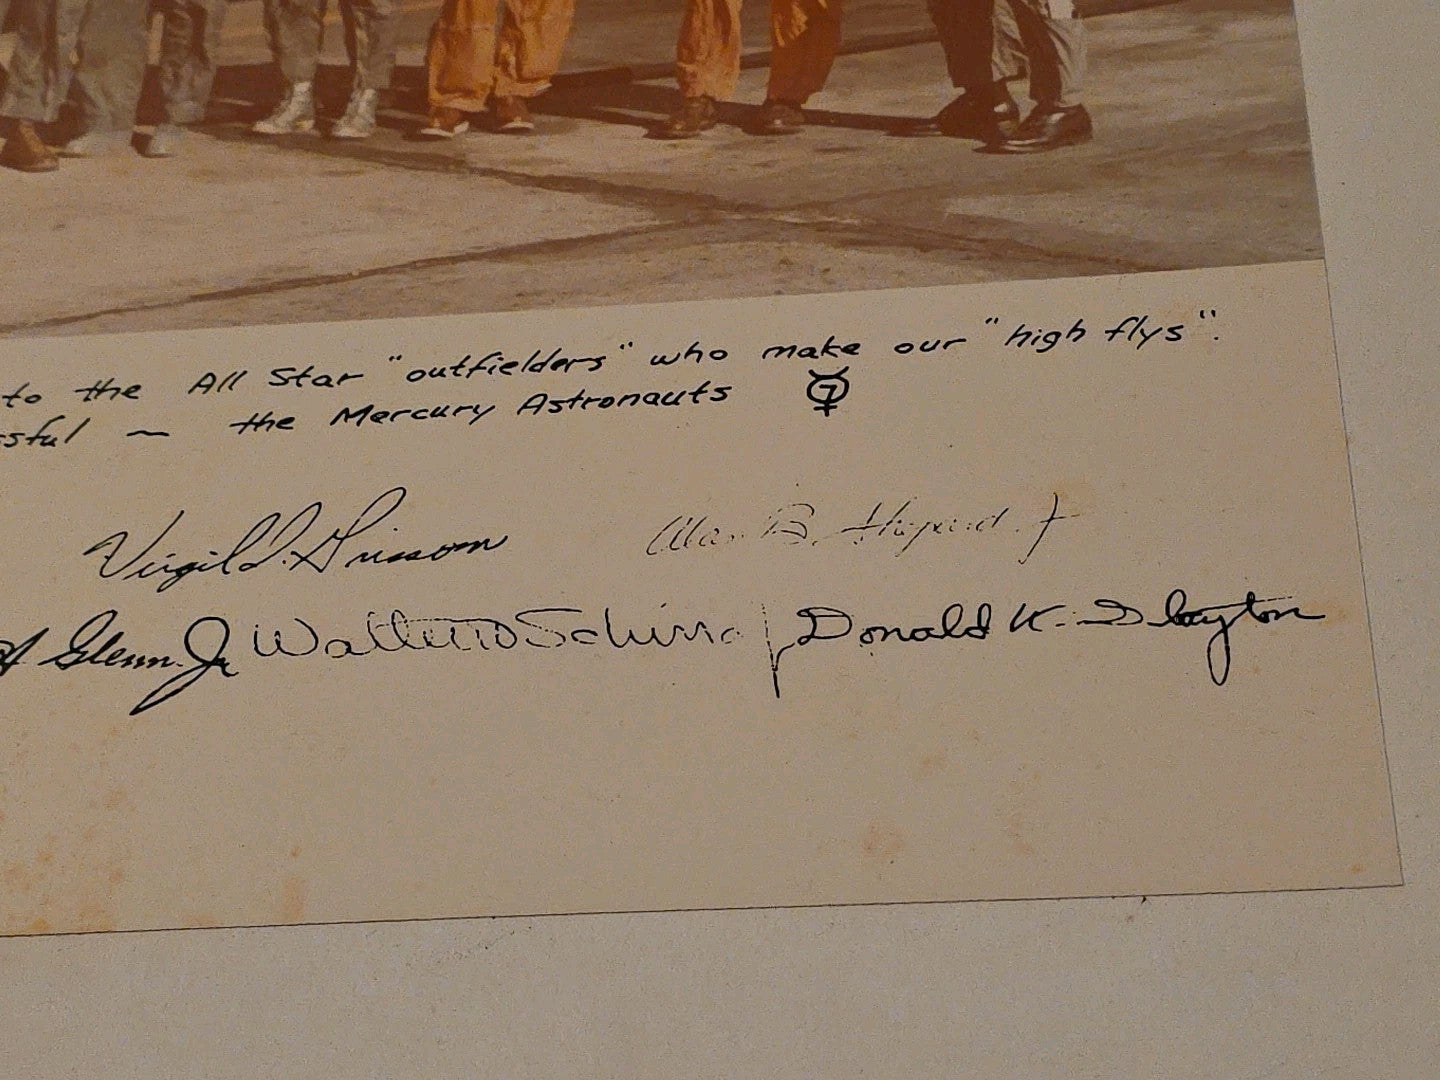 to the All Star "outfielders" who make our "high flys".
ssful ~ the Mercury Astronauts 7
Virgil I. Grissom Alan B. Shepard Jr
A Glenn Jr Walter M Schirra Jr Donald K. Slayton